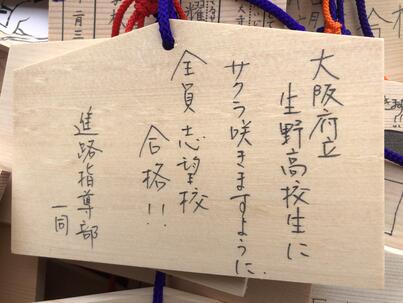 大阪府立
生野高校生に
サクラ咲きますように
全員志望校
合格!!
進路指導部
一同